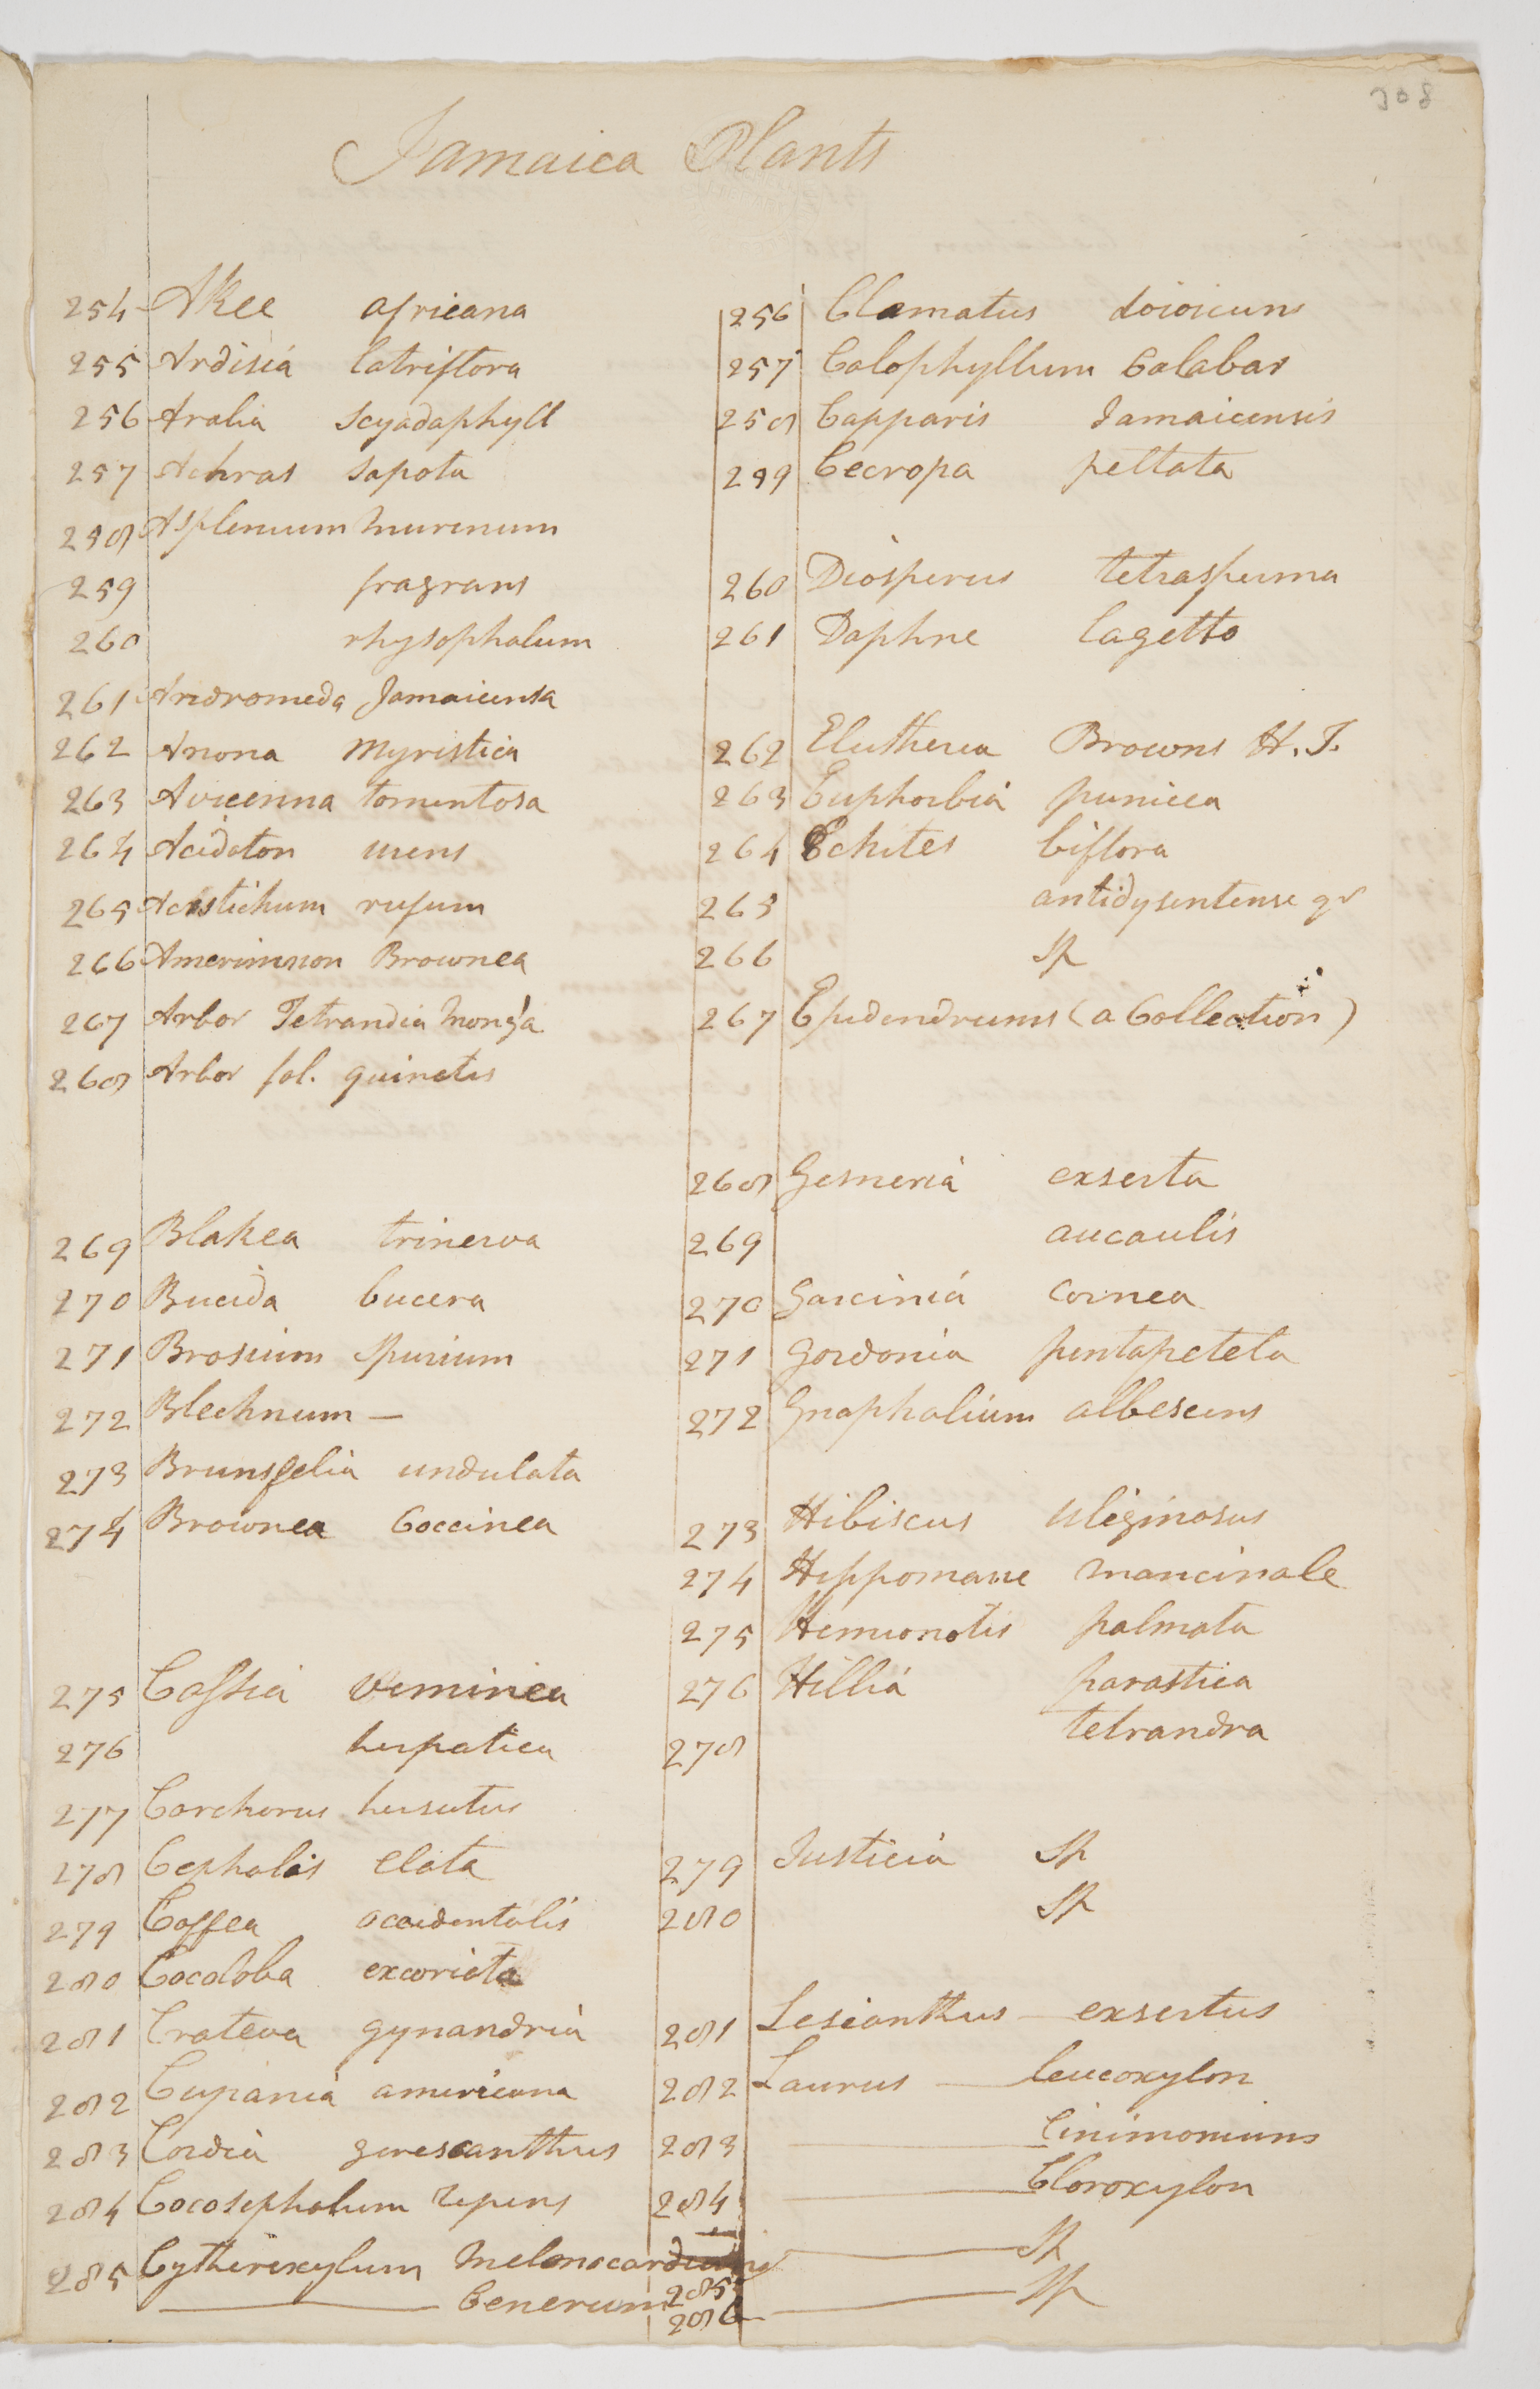 308
Jamaica Plants
254 Akee africana
255 Ardisia latriflora
256 Aralia Scyadaphyll
257 Achras Sapota
258 Asplenium murinum
259 fragrans
260 rhysophalum
261 Andromeda Jamaicensa
262 Anona Myristica
263 Avicenna tomentosa
264 Acidoton urens
265 Acrostichum rufum
266 Amerimnon Brownea
267 Arbor Tetrandia
268 Arbor fol. quinatis
269 Blakea trinerva
270 Bucida bucera
271 Brosium Spurium
272 Blechnum —
273 Brunsfelia undulata
274 Brownea Coccinea
275 Cassia Viminea
276 herpatica
277 Corchorus hirsutus
278 Cephalis Elata
279 Coffea occidentalis
280 Cocoloba excoriata
281 Crateva gynandria
282 Cupania americana
283 Cordia gerescanthus
284 Cocosephalum repens
285 Cytherexylum Melonocardium
— Cenerum
256 Clamatus doioicuns
257 Calophyllum Calabar
258 Capparis Jamaicensis
259 Cecropa peltata
260 Diosperus tetrasperma
261 Daphne lagetto
262 Elutheria Browns H. J.
263 Euphorbia punicea
264 Echites biflora
265 antidysentense gr
266 Sp
267 Epidendrums (a Collection)
268 Gesneria exserta
269 aucaulis
270 Garcinia Cornea
271 Gordonia pentapetela
272 Gnaphalium albescens
273 Hibiscus uliginosus
274 Hippomane mancinale
275 Hemionotis palmata
276 Hillia parastica
278 tetrandra
279 Justicia Sp
280 Sp
281 Lesianthus — exsertus
282 Laurus — leucoxylon
283 — Cinimoniums
284 — Cloroxylon
285 — Sp
286 — Sp